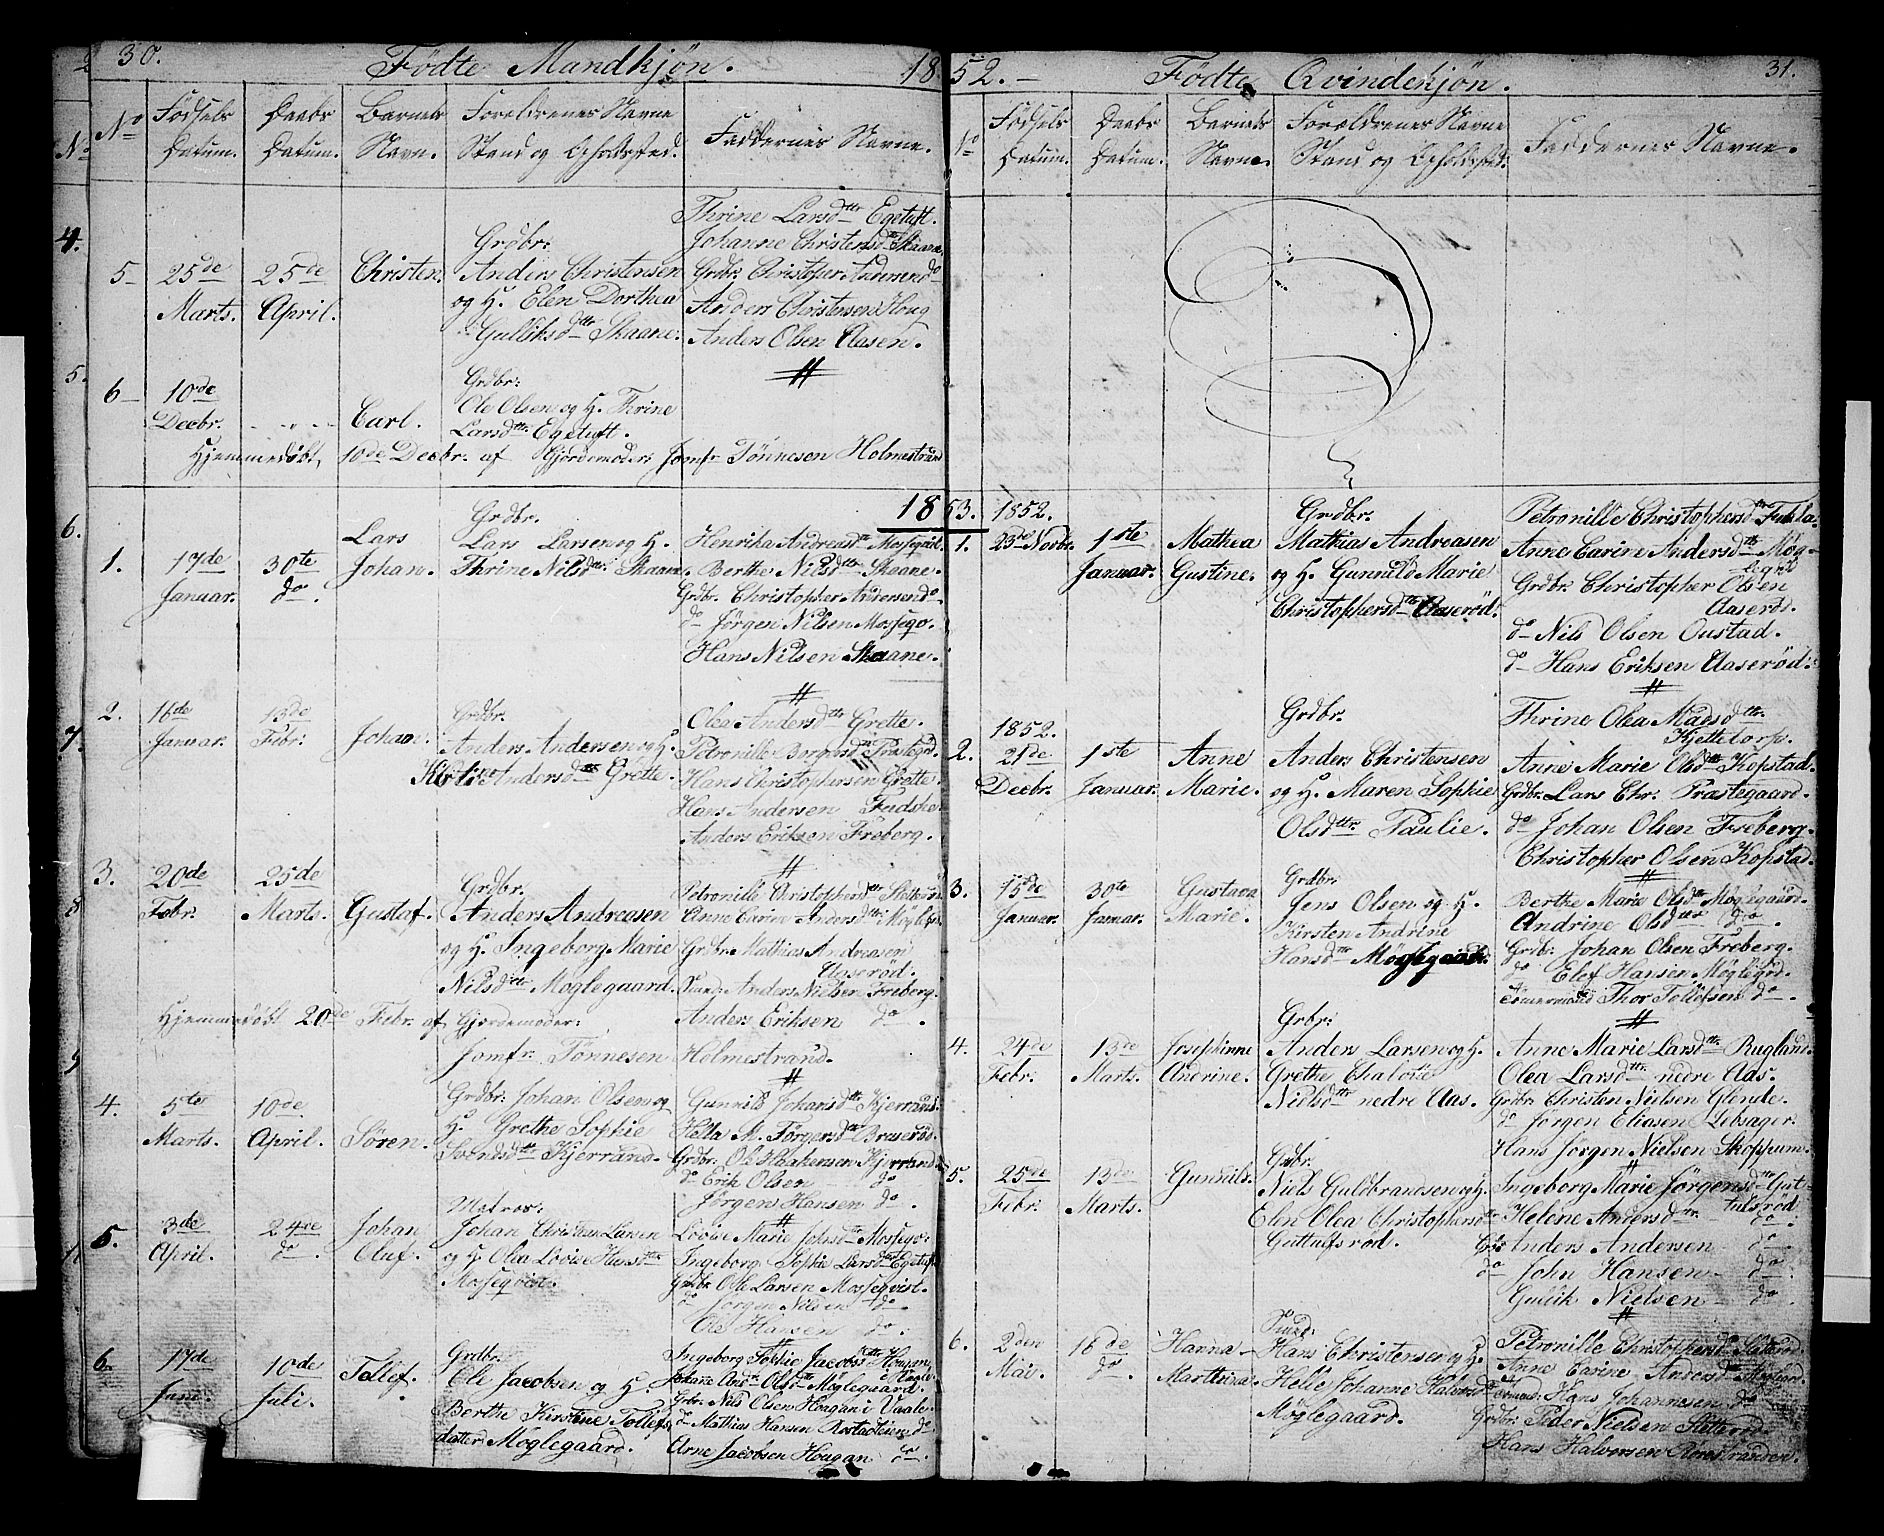 30.
Födte Mandkjön.
18
No
Födsels Datum.
Daabs Datum.
Barnets Navn.
Foreldrenes Navne Stand og Opholdsted.
Faddernes Navne.
Thrine Larsdttr Egetuft.
Johanne Christensdttr Skaane
5
25de Marts.
25de April.
Christen.
Grdbr:
Anders Christensen
og H. Elen Dorthea
Gulliksdttr Skaane.
Grdbr. Christopher Andersen do
Anders Christensen Houg
Anders Olsen Aasen.
6
10de Decbr.
Carl.
Grdbr:
Ole Olsen og H. Thrine
Larsdttr Egetuft.
Hjemmedöbt, 10de Decbr. af Gjordemoder: Jomfr Tönnesen Holmestrand
18
1.
17de Januar.
30te do.
Lars
Johan.
Grdbr.
Lars Larsen og H.
Thrine Nilsdttr Skaane.
Henrika Andreasdttr Mossequist.
Berthe Nilsdttr Skaane.
Grdbr. Christopher Andersen do
do Jörgen Nilsen Mosseqv.
Hans Nilsen Skaane.
2.
16de Januar.
13de Febr:
Johan.
Grdbr.
Anders Andersen og H.
Andersdttr Grette.
Olea Andersdttr Grette.
Petronille Borgersdttr Præstegrd.
Hans Christophersen Grette.
Hans Andersen
Anders Eriksen Freberg.
3.
20de Febr.
25de Marts.
Gustaf.
Grdbr.
Anders Andreasen
og H. Ingeborg Marie
Nilsdttr Möglegaard.
Petronille Christophersdttr
Anne Carine Andersdttr Möglegrd
Grdbr. Mathias Andreasen
Aaseröd.
Anders Nielsen Freberg.
Hjemmedöbt 20de Febr. af Gjordemoder:
Anders Eriksen do.
Jomfr. Tönnesen Holmestrand.
4.
5te Marts.
10de April.
Sören.
Grdbr: Johan Olsen og
H. Grethe Sophie
Svendsdttr Kjerrand.
Gunnild Johansdttr Kjerrand.
Hella M. Jörgensdttr
Grdbr: Ole Haakensen Kjerrand
do Erik Olsen do
Jörgen Hansen do.
5.
3de April.
24de do.
Johan
Oluf.
Matros:
Johan Christian Larsen
og H. Olea Lovise Hansdttr
Mosseqvist.
Lovise Marie Johnsdttr Mosseqv:
Ingeborg Sophie Larsdttr Egetuft
Grdbr. Ole Larsen Mosseqvist.
do Jörgen Nilsen do
Ole Hansen do.
6.
17de Juni.
10de Juli.
Tollef.
Grdbr.
Ole Jacobsen og H
Berthe Kirstine Tollefs
datter Möglegaard.
Ingeborg Sophie Jacobsdttr Hougan
Olsdttr Möglegaard.
Grbr. Nils Olsen Hougan i Vaale
do Mathias Hansen do
Arne Jacobsen Hougan do.
52.
Födte Qvindekjön.
31.
No
Födsels Datum.
Daabs Datum.
Barnets Navne.
Forældrenes Navne Stand og Opholdsted.
Faddernes Navne.
53.
1852.
1.
23de Novbr.
1ste Januar.
Mathea
Gustine.
Grdbr.
Mathias Andreasen
og H. Gunnild Marie
Christophersdttr Aaseröd.
Petronille Christophersdttr
Anne Carine Andersdttr Mög-
legrd
Grdbr. Christopher Olsen
Aaseröd.
do Nils Olsen Oustad.
do Hans Eriksen Aaseröd.
1852.
2.
21de Decbr.
1ste Januar.
Anne
Marie.
Grdbr.
Anders Christensen
og H. Maren Sophie
Olsdttr Paulie.
Thrine Olea Madsdttr
Kjettetorp.
Anne Marie Olsdttr Kopstad.
Grdbr. Lars Chr. Præstegaard.
do Johan Olsen Freberg.
Christopher Olsen Kopstad.
3.
15de Januar.
30te Januar.
Gustava
Marie.
Grdbr:
Jens Olsen og H.
Kirsten Andrine
Hansdttr Möglegaard.
Berthe Marie Olsdttr Möglegaard.
Andrine Olsdttr do.
Grdbr. Johan Olsen Freberg.
do Elef Hansen Möglegrd.
Tömermand Thor Tollefsen do.
4.
24de Febr.
13de Marts.
Josephinne
Andrine.
Grbr:
Anders Larsen og H.
Grethe Chalotte
Nielsdttr nedre Aas.
Anne Marie Larsdttr Rugland.
Olea Larsdttr nedre Aas.
Grdbr. Christen Nielsen Glende.
do Jörgen Eliasen Lebsager.
Hans Jörgen Nielsen Skoppum.
5.
25de Febr.
13de Marts.
Gunnild.
Grdbr.
Niels Guldbrandsen og H.
Elen Olea Christophersdttr
Guttulfsröd.
Ingeborg Marie Jörgensdttr Gut-
tulsröd
Helene Andersdttr do.
Grdbr Anders Andersen do
do John Hansen do
Gulik Nielsen do.
6.
2den Mai.
16de do.
Hanna
Marthina.
Hans Christensen og H.
Helle Johanne Halvorsdttr
Möglegaard.
Petronille Christophersdttr
Anne Carine Andersdttr Möglegaard
Hans Johannesen do
Grdbr: Peder Nielsen
Hans Halvorsen